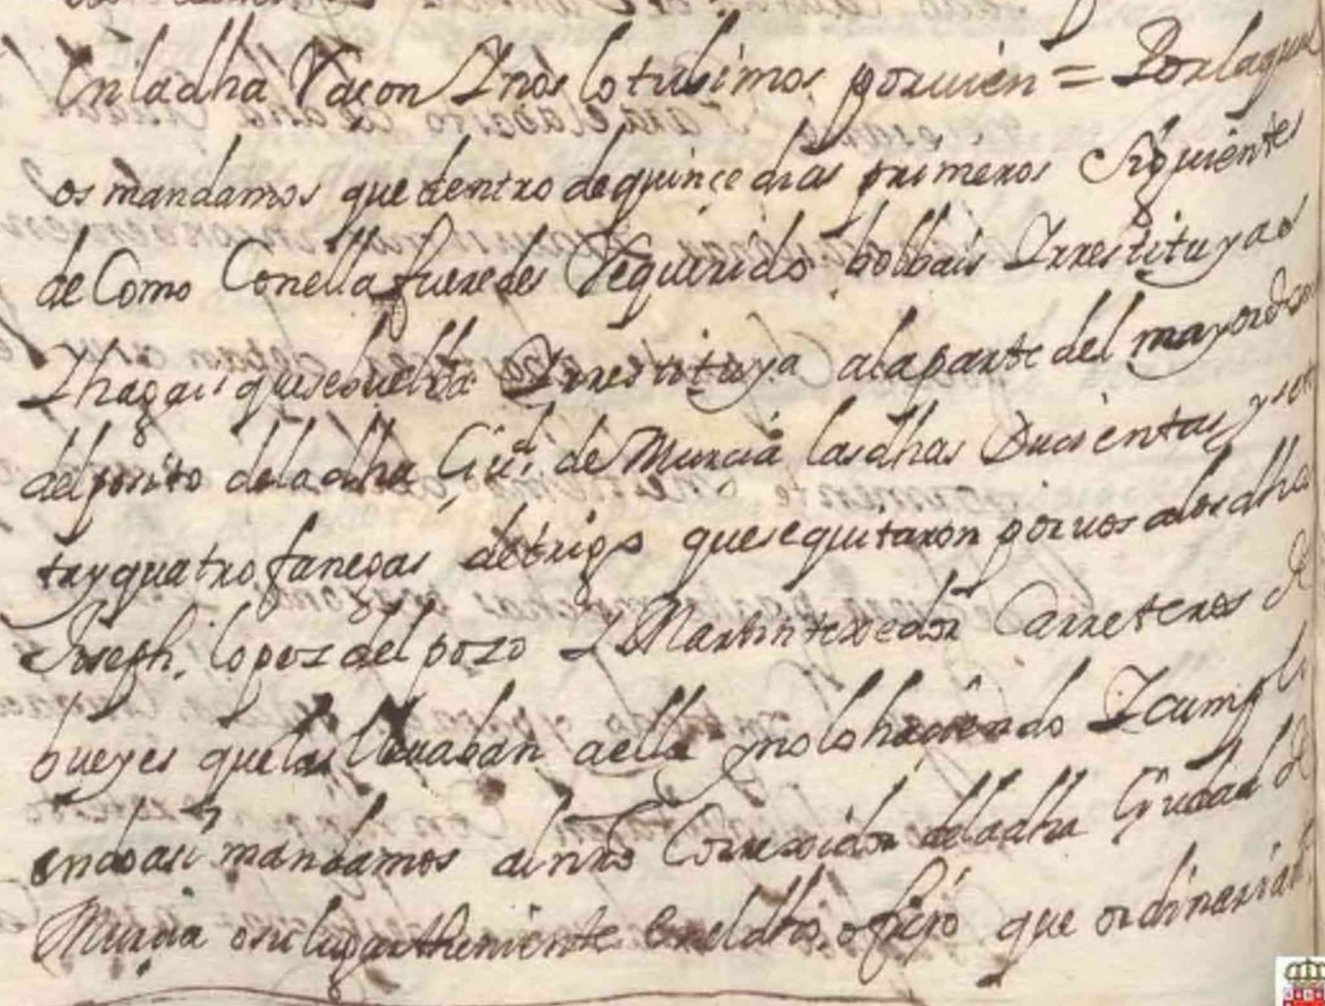 En la dha Raçon Y nos lo tubimos por vien = Por la qual
os mandamos que dentro de quinçe dias primeros siguientes
de Como Con ella fueredes Requerido bolbais Y rrestituyais
Y hagais que se buelba Y rrestituya a la parte del mayordomo
del posito de la dha Çiud de Murcia las dhas Ducientas y son
ta y quatro fanegas de trigo que se quitaron por vos a los dhos
Joseph lopez del pozo Y Martin texedor Carreteros de
bueyes que las llevaban a ella y no lo haçiendo Y cumpli
endo asi mandamos al nro Correxidor de la dha Çiudad de
Murçia o su lugartheniente en el dho ofiçio que ordinaria